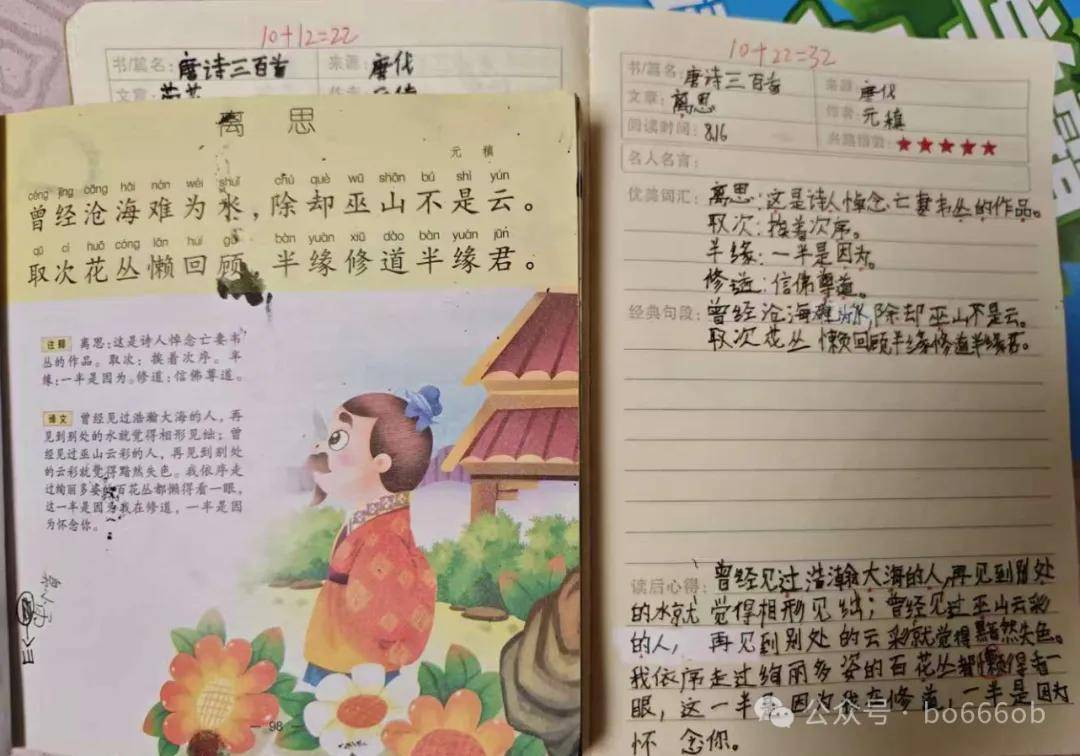 10+12=22
书/篇名：唐诗三百首
来源：唐代
文章：
离 思
元 稹
céng jīng cāng hǎi nán wéi shuǐ chú què wū shān bú shì yún
曾经沧海难为水，除却巫山不是云。
qǔ cì huā cóng lǎn huí gù bàn yuán xiū dào bàn yuán jūn
取次花丛懒回顾 半缘修道半缘君。
注释 离思：这是诗人悼念亡妻韦
丛的作品。取次：挨着次序。半
缘：一半是因为。修道：信佛尊道。
译文 曾经见过浩瀚大海的人，再
见到别处的水就觉得相形见绌；曾
经见过巫山云彩的人，再见到别处
的云彩就觉得黯然失色。我依序走
过绚丽多姿的百花丛都懒得看一眼，
这一半是因为我在修道，一半是因
为怀念你。
98
10+22=32
书/篇名：唐诗三百首
来源：唐代
文章：离思
作者：元稹
阅读时间：8.16
兴趣指数：★★★★★
名人名言：
优美词汇：离思：这是诗人悼念亡妻韦丛的作品。
取次：挨着次序。
半缘：一半是因为。
修道：信佛尊道。
经典句段：曾经沧海难为水，除却巫山不是云。
取次花丛 懒回顾半缘修道半缘君。
读后心得：曾经见过浩瀚大海的人，再见到别处
的水就觉得相形见绌；曾经见过巫山云彩
的人，再见到别处的云彩就觉得黯然失色。
我依序走过绚丽多姿的百花丛都懒得看一
眼，这一半是因为我在修道，一半是因为
怀念你。
公众号 · bo666ob